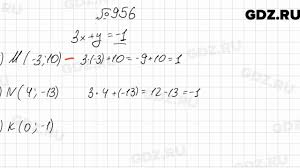 GDZ.RU
№956
3x+y=-1
) M(-3;10) - 3·(-3)+10=-9+10=1
) N(4;-13) 3·4+(-13)=12-13=-1
) K(0;-1)
GDZ.RU